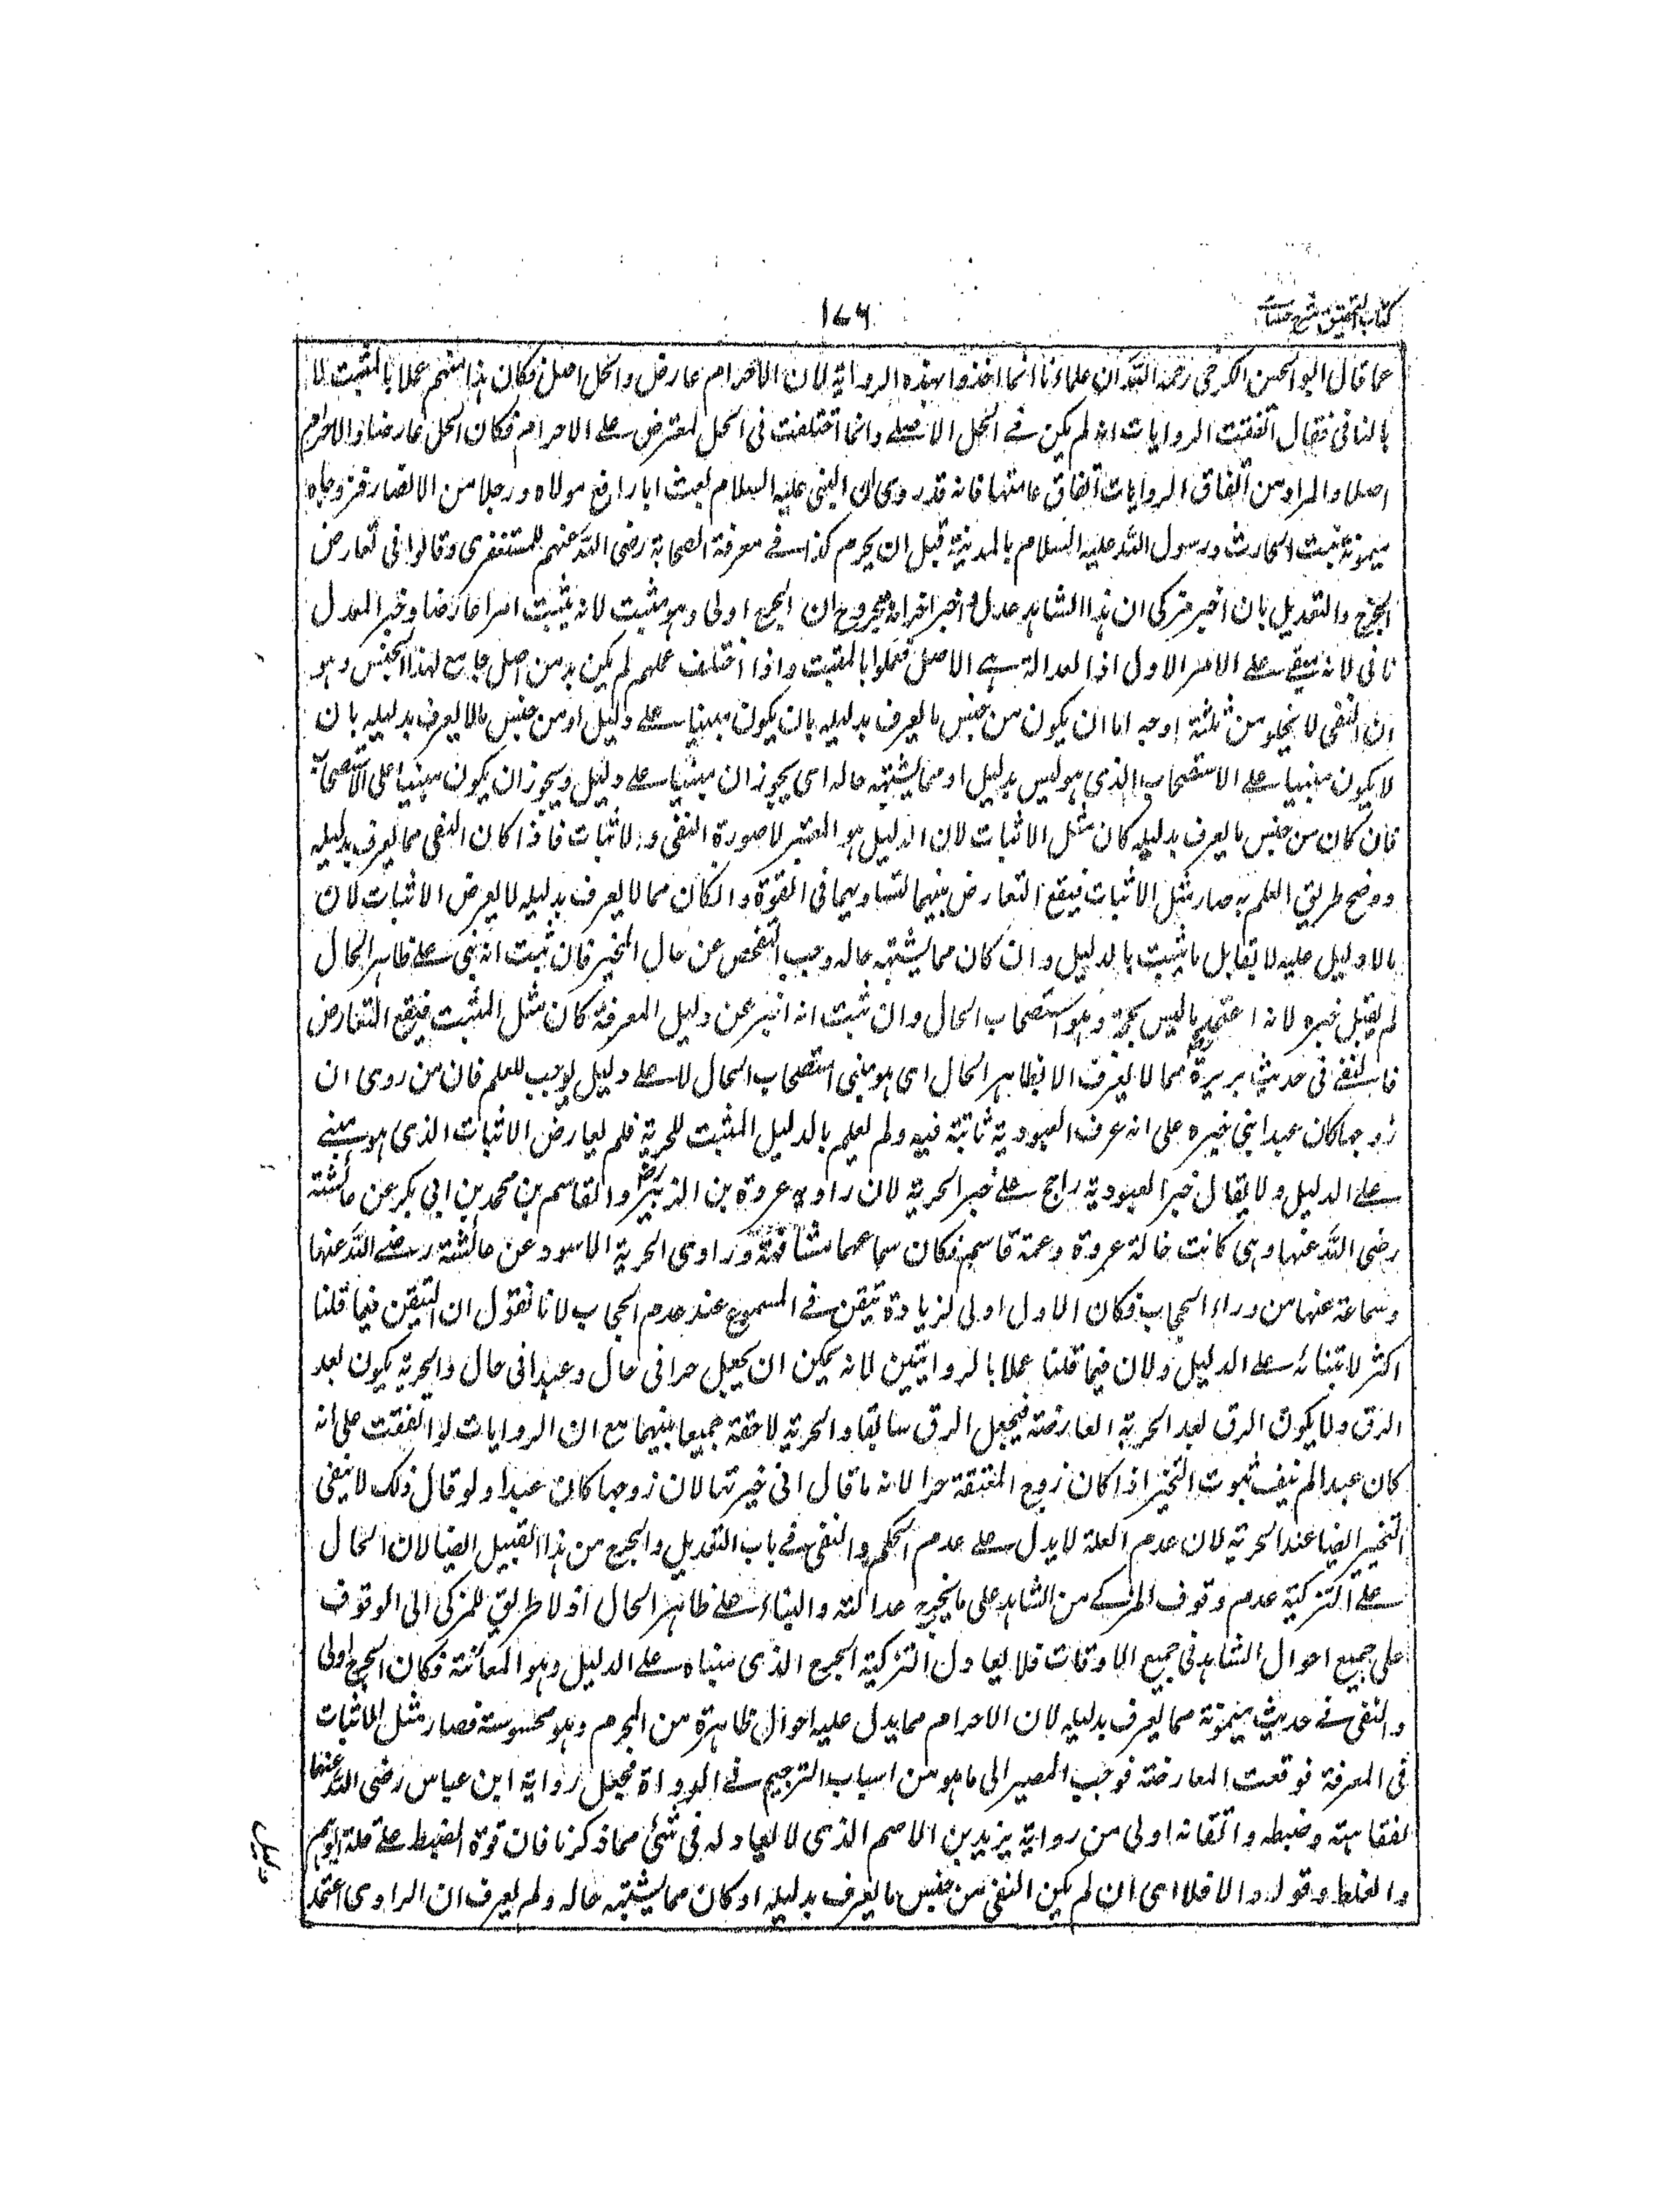 كتاب التحقيق شرح حسامى
۱۷۶
عما قال ابو الحسن الكرخى رحمه الله ان علماءنا انما اخذوا بهذه الرواية لان الاحرام عارض والحل اصل فكان هذا منهم عملا بالمثبت لا
بالنافى فقال اتفقت الروايات انه لم يكن فى الحل الاصلے وانما اختلفت فى الحل المعترض على الاحرام فكان الحل عارضا والاحرام
اصلا والمراد من اتفاق الروايات اتفاق عامتها فانه قد روى ان النبى عليه السلام بعث ابا رافع مولاه ورجلا من الانصار فزوجاه
ميمونة بنت الحارث ورسول الله عليه السلام بالمدينة قبل ان يحرم كذا فى معرفة الصحابة رضى الله عنهم للمستغفرى وقالوا فى تعارض
الجرح والتعديل بان اخبر مزكى ان هذا الشاهد عدل واخبر اخر انه مجروح ان الجرح اولى وهو مثبت لانه يثبت امرا عارضا وخبر المعدل
نافى لانه مبقى على الامر الاول اذ العدالة هى الاصل فعملوا بالمثبت واذا اختلف عملهم لم يكن بد من اصل جامع لهذا الجنس وهو
ان النفى لا يخلو من ثلثة اوجه اما ان يكون من جنس ما يعرف بدليله بان يكون مبنيا على دليل او من جنس مالا يعرف بدليله بان
لا يكون مبنيا على الاستصحاب الذى هو ليس بدليل او مما يشتبه حاله اى يجوز ان مبنيا على دليل ويجوز ان يكون مبنيا على الاستصحاب
فان كان من جنس ما يعرف بدليله كان مثل الاثبات لان الدليل هو المعتبر لا صورة النفى والاثبات فاذا كان النفى مما يعرف بدليله
ووضح طريق العلم به صار مثل الاثبات فيقع التعارض بينهما لتساويهما فى القوة وان كان مما لا يعرف بدليله لا يعرض الاثبات لان
مالا دليل عليه لا يقابل ما يثبت بالدليل وان كان مما يشتبه حاله وجب التفحص عن حال المخبر فان ثبت انه بنى على ظاهر الحال
لم يقبل خبره لانه اعتمد ما ليس بحجة وهو استصحاب الحال وان ثبت انه اخبر عن دليل المعرفة كان مثل المثبت فيقع التعارض
فالنفى فى حديث بريرة مما لا يعرف الا بظاهر الحال اى هو مبنى استصحاب الحال لا على دليل يوجب للعلم فان من روى ان
زوجها كان عبدا بنى خبره على انه عرف العبودية ثابتة فيه ولم يعلم بالدليل المثبت للحرية فلم يعارض الاثبات الذى هو مبنى
على الدليل ولا يقال خبر العبودية راجح على خبر الحرية لان راويه عروة بن الزبير والقاسم بن محمد بن ابى بكر عن عائشة
رضى الله عنها وهى كانت خالة عروة وعمة قاسم فكان سماعهما مشافهة وراوى الحرية الاسود عن عائشة رضى الله عنها
وسماعة عنها من وراء الحجاب فكان الاول اولى لزيادة تيقن فى المسموع عند عدم الحجاب لانا نقول ان التيقن فيما قلنا
اكثر لابتنائه على الدليل ولان فيما قلنا عملا بالروايتين لانه يمكن ان يجعل حرا فى حال وعبدا فى حال والحرية يكون بعد
الرق ولا يكون الرق بعد الحرية العارضة فيجعل الرق سابقا والحرية لاحقة جمعا بينهما مع ان الروايات لو اتفقت على انه
كان عبدا لم ينف ثبوت التخير اذا كان زوج المعتقة حرا لانه ما قال انى خيرتها لان زوجها كان عبدا ولو قال ذلك لا ينفى
التخيير ايضا عند الحرية لان عدم العلة لا يدل على عدم الحكم والنفى فى باب التعديل والجرح من هذا القبيل ايضا لان الحال
على التزكية عدم وقوف المزكى من الشاهد على ما يجرح عدالته والبناء على ظاهر الحال اذ لا طريق للمزكى الى الوقوف
على جميع احوال الشاهد فى جميع الاوقات فلا يعادل التزكية الجرح الذى مبناه على الدليل وهو المعائنة فكان الجرح اولى
والنفى فى حديث ميمونة مما يعرف بدليله لان الاحرام مما يدل عليه احوال ظاهرة من المحرم وهو محسوسة فصار مثل الاثبات
فى المعرفة فوقعت المعارضة فوجب المصير الى ما هو من اسباب الترجيح فى الرواة فجعل رواية ابن عباس رضى الله عنهما
لفقاهته وضبطه واتقانه اولى من رواية يزيد بن الاصم الذى لا يعادله فى شئ مما ذكرنا فان قوة الضبط على قلة الوهم
والغلط وقوله والا فلا اى ان لم يكن النفى من جنس ما يعرف بدليله او كان مما يشتبه حاله ولم يعرف ان الراوى اعتمد
دليل